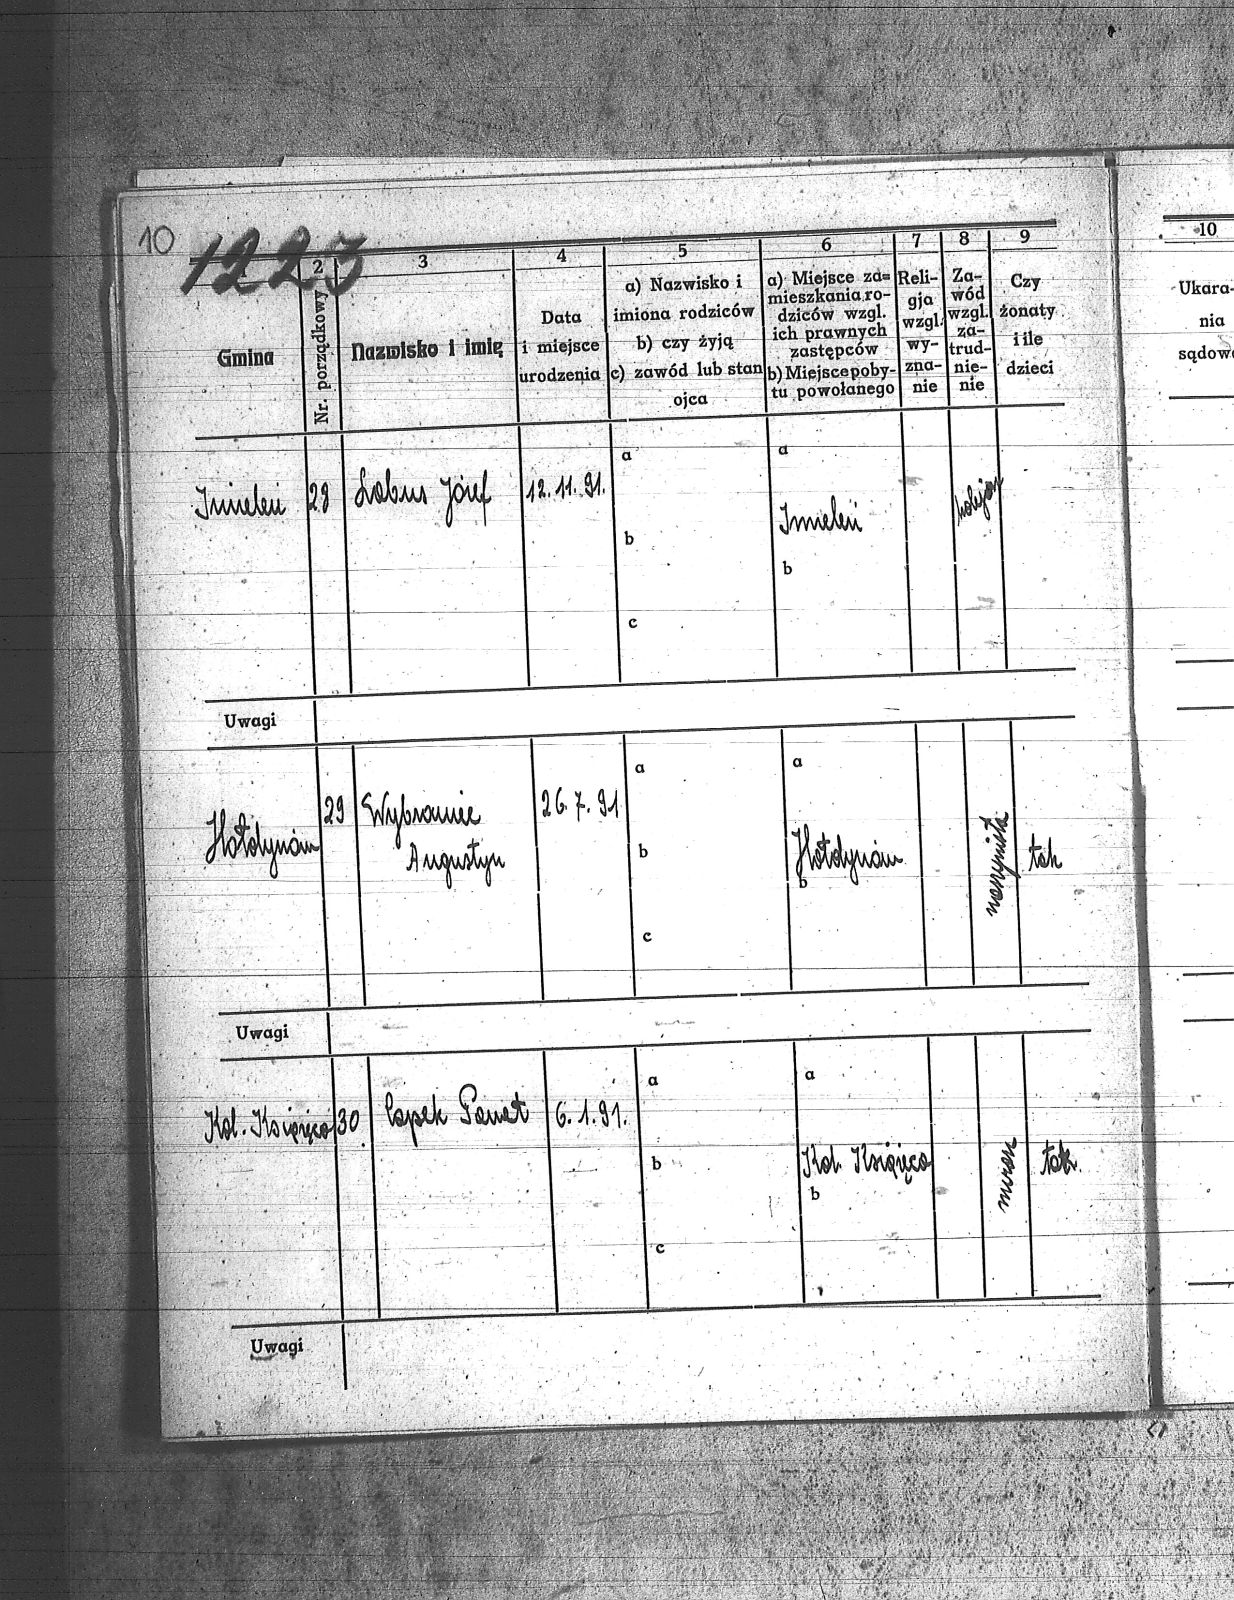 10 1223
2 3 4 5 6 7 8 9 10
Gmina
Nr. porządkowy
Nazwisko i imię
Data
i miejsce
urodzenia
a) Nazwisko i
imiona rodziców
b) czy żyją
c) zawód lub stan
ojca
a) Miejsce za=
mieszkania ro-
dziców wzgl.
ich prawnych
zastępców
b) Miejsce poby-
tu powołanego
Reli-
gja
wzgl.
wy-
zna-
nie
Za-
wód
wzgl.
za-
trud-
nie-
nie
Czy
żonaty
i ile
dzieci
Ukara-
nia
sądowe
Imieleń 28 Labus Józef 12. 11. 91.
a
b
c
a
Imieleń
b
Uwagi
Hołdynów 29 Wybraniec
Augustyn
26. 7. 91
a
b
c
a
Hołdynów
b
maszynista
tak
Uwagi
Kol. Książęca 30 Capek Paweł 6. 1. 91.
a
b
c
a
Kol. Książęca
b
tak
Uwagi